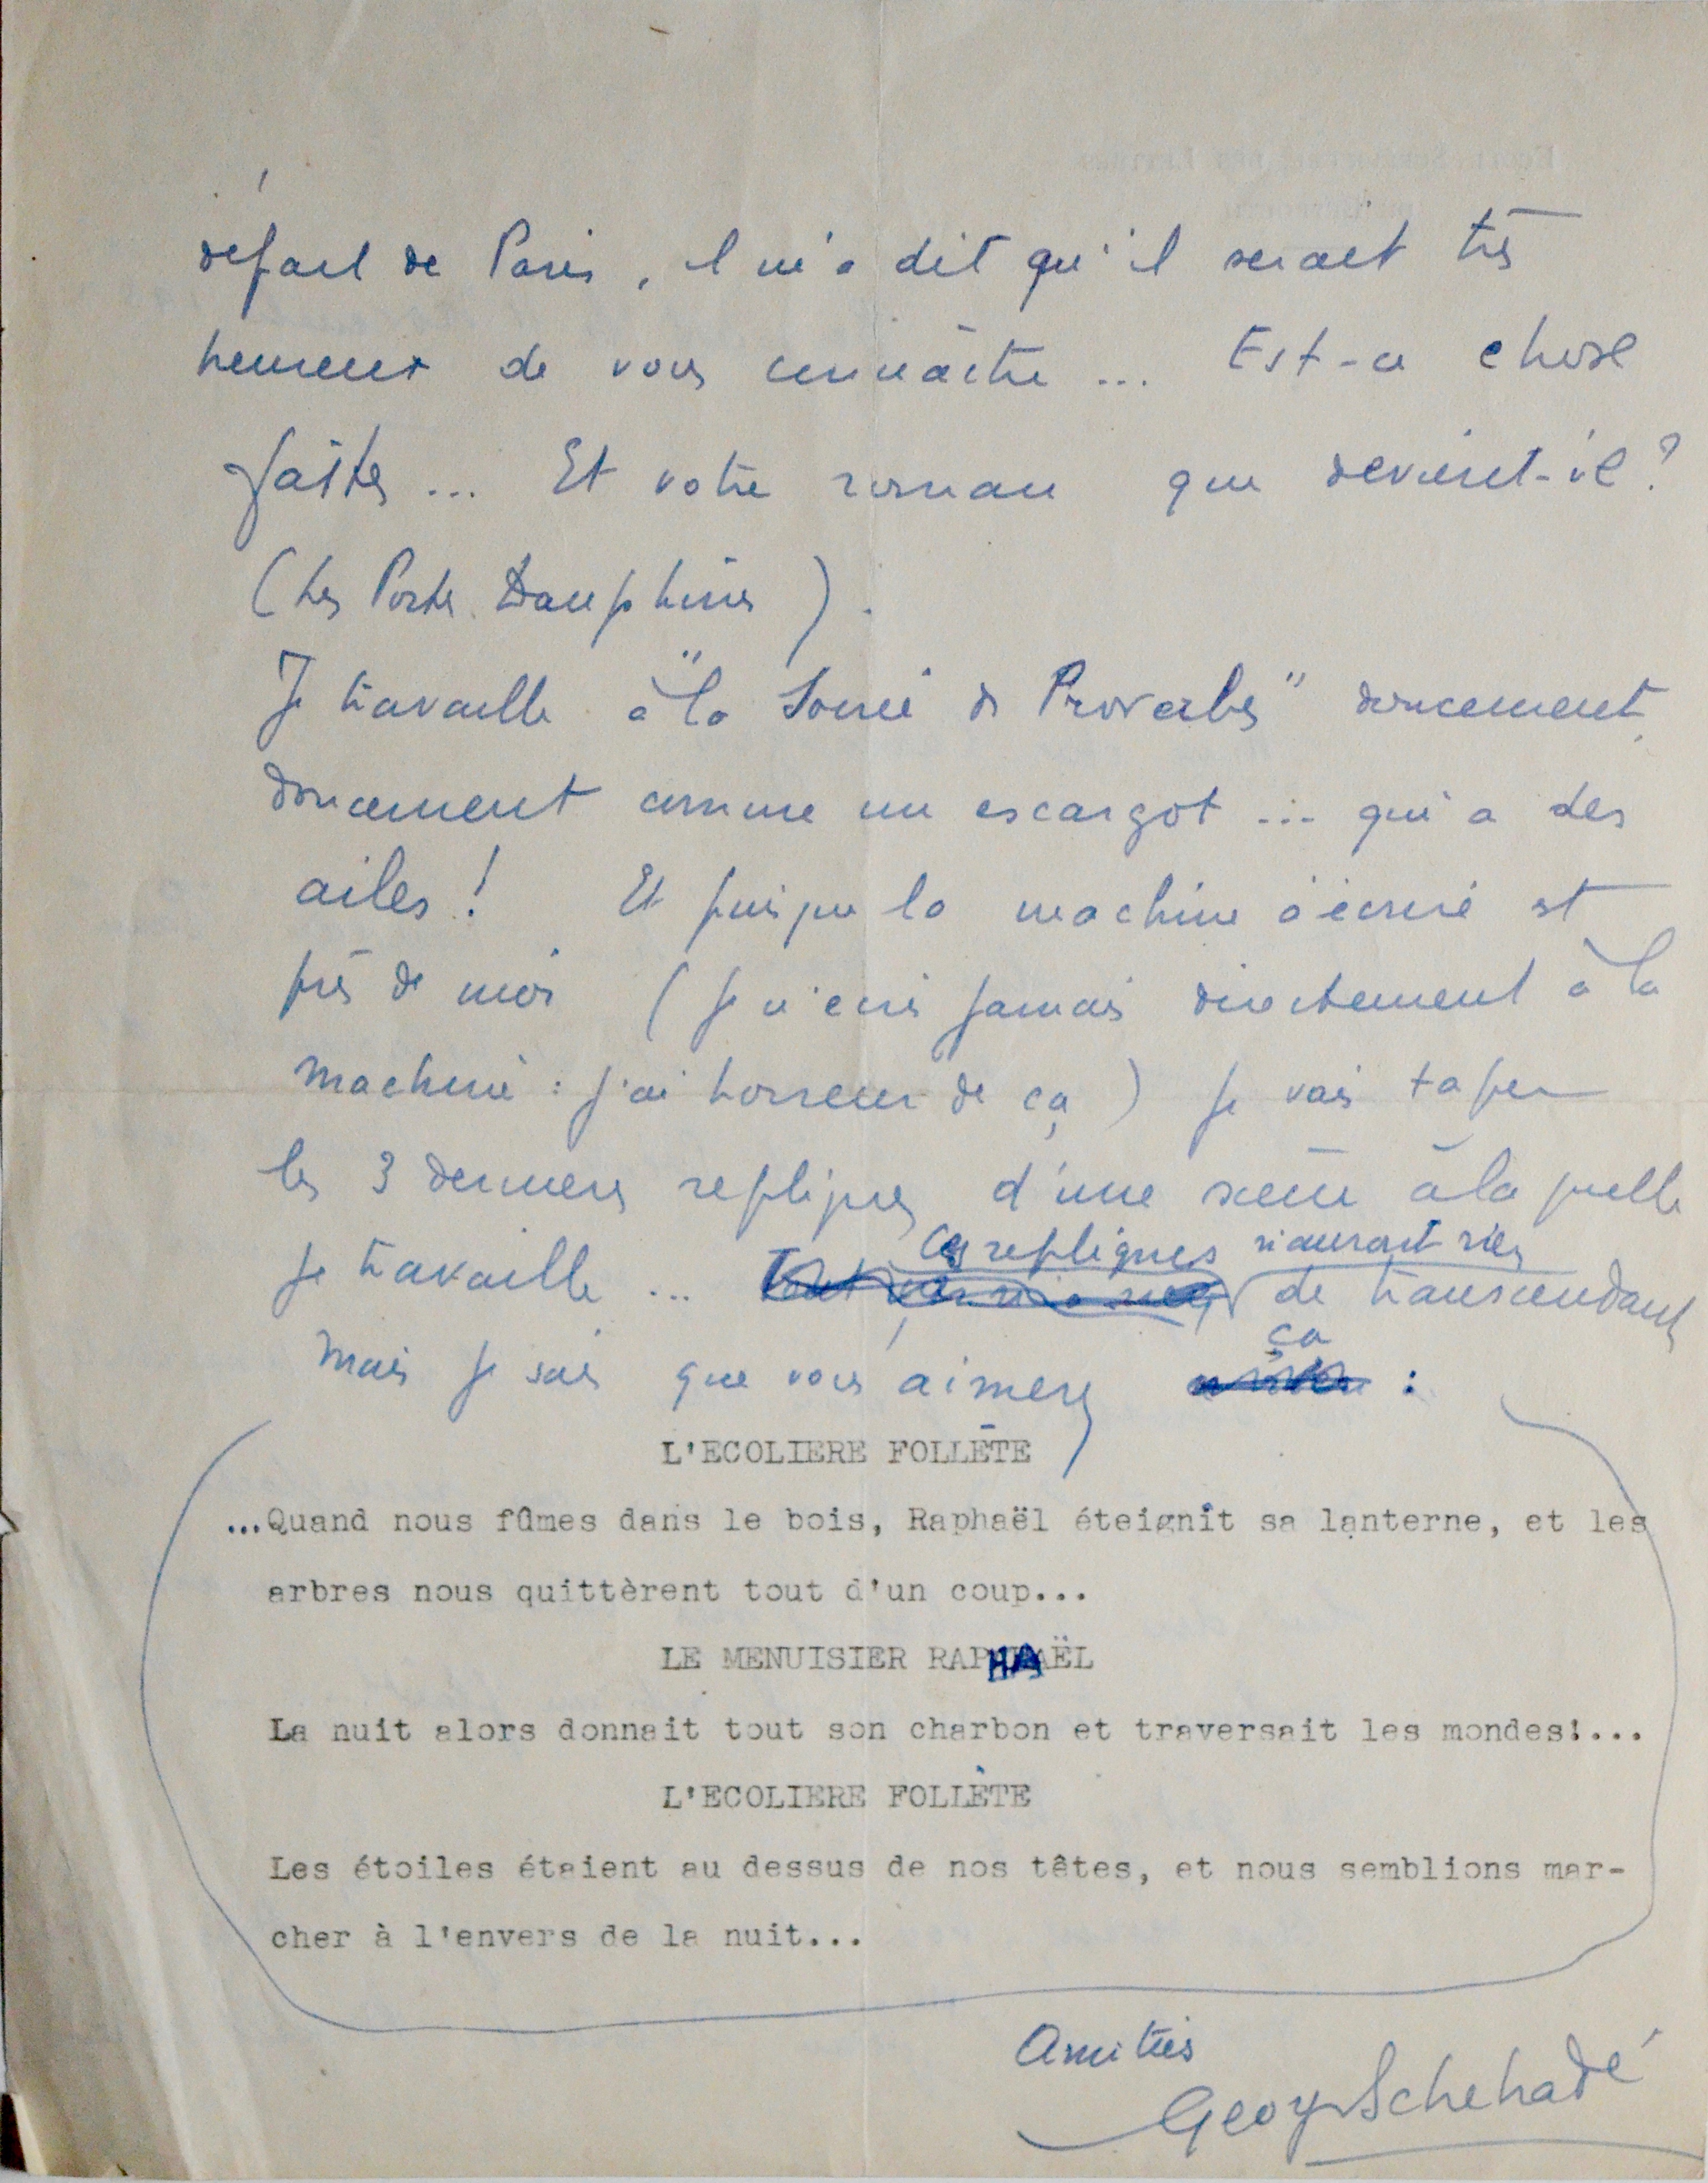 départ de Paris, il m'a dit qu'il serait très
heureux de vous connaître ... Est-ce chose
faite ... Et votre roman que devient-il ?
(Les Portes Dauphines).
Je travaille à "la Soirée des Proverbes" doucement,
doucement comme un escargot ... qui a des
ailes ! Et puisque la machine à écrire est
près de moi (je n'écris jamais directement à la
machine : j'ai horreur de ça) je vais taper
les 3 dernières repliques d'une scène à laquelle
Ces repliques n'auront rien
je travaille ... de transcendant
ça
Mais je sais que vous aimerez :
L'ECOLIERE FOLLÈTE
...Quand nous fûmes dans le bois, Raphaël éteignît sa lanterne, et les
arbres nous quittèrent tout d'un coup...
LE MENUISIER RAPHAËL
La nuit alors donnait tout son charbon et traversait les mondes!...
L'ECOLIERE FOLLÈTE
Les étoiles étaient au dessus de nos têtes, et nous semblions mar-
cher à l'envers de la nuit...
Amitiés
Georges Schehadé